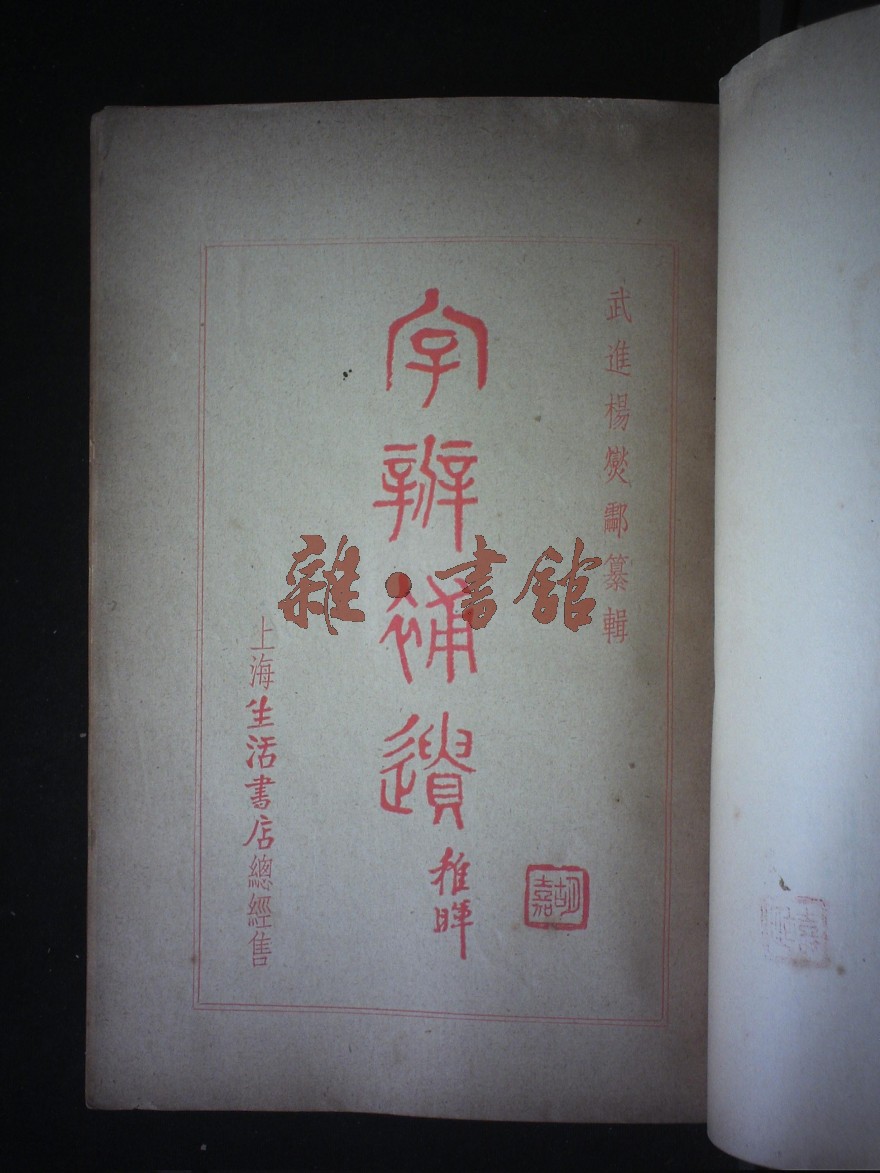 武進楊燮鄰纂輯
字辨補遺
稚暉
胡嘉
上海生活書店總經售
雜·書館